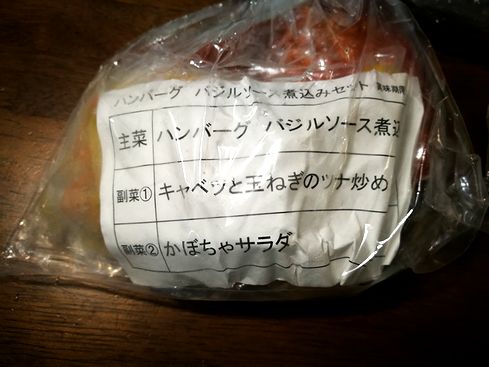 ハンバーグ バジルソース煮込みセット 賞味期限
主菜 ハンバーグ バジルソース煮込
副菜① キャベツと玉ねぎのツナ炒め
副菜② かぼちゃサラダ